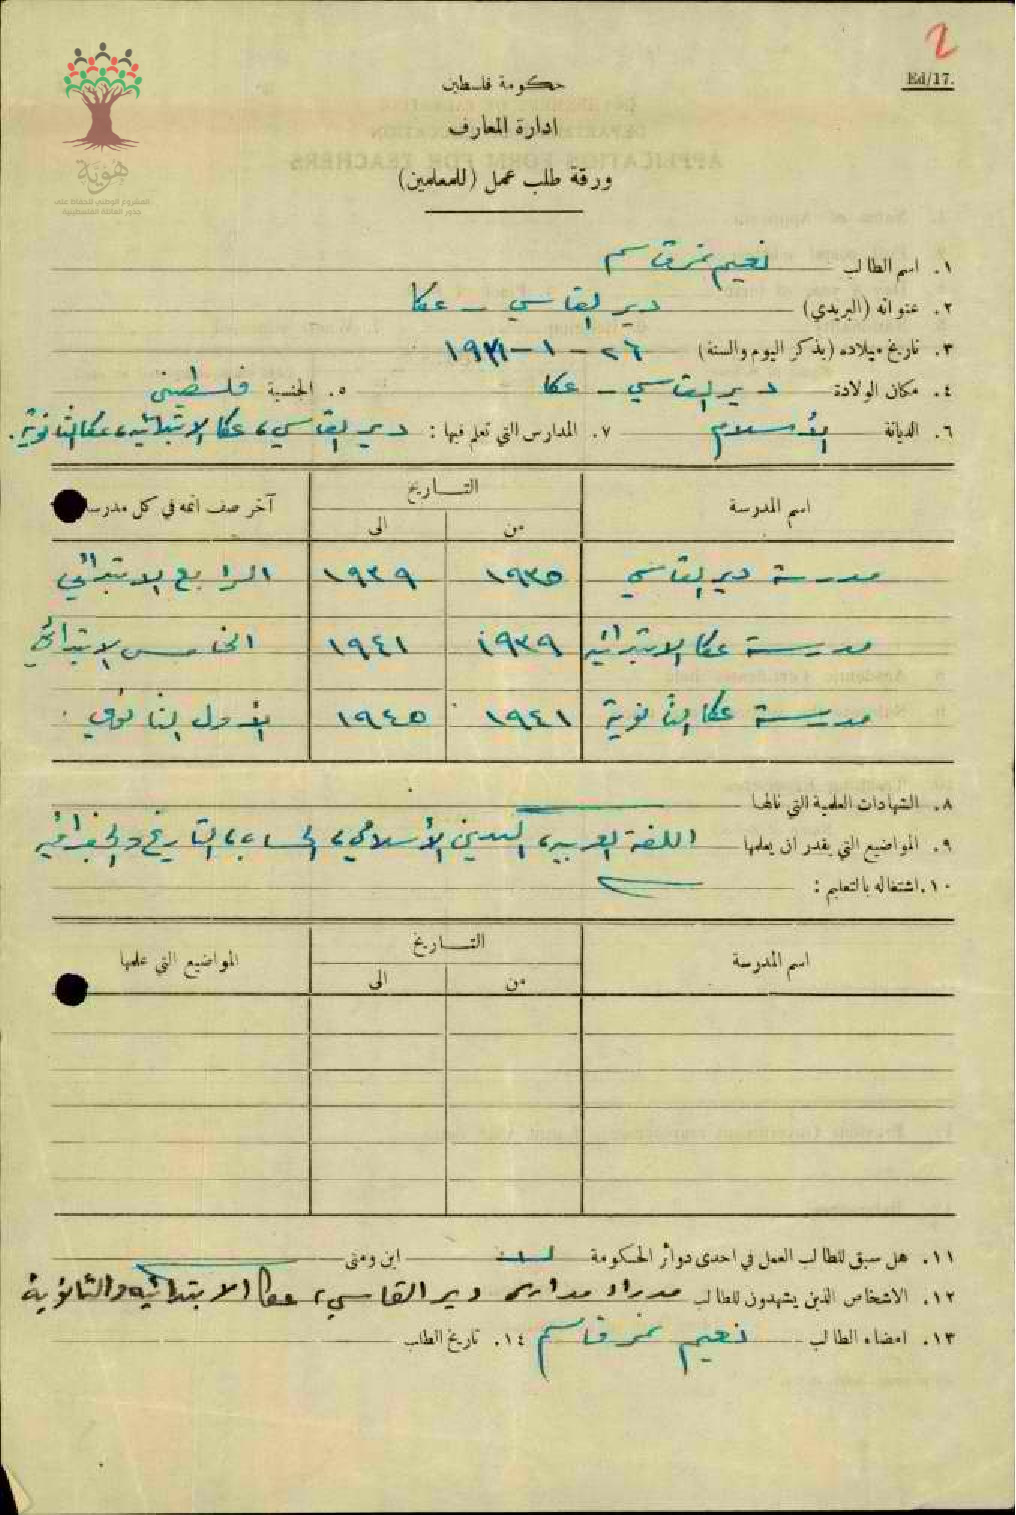 2
Ed/17.
هوية
المشروع الوطني للحفاظ على
جذور العائلة الفلسطينية
حكومة فلسطين
ادارة المعارف
ورقة طلب عمل (للمعلمين)
١. اسم الطالب نعيم نمر قاسم
٢. عنوانه (البريدي) دير القاسي - عكا
٣. تاريخ ميلاده (يذكر اليوم والسنة) ٢٦ - ١ - ١٩٣١
٤. مكان الولادة دير القاسي - عكا ٥. الجنسية فلسطيني
٦. الديانة الأسلام ٧. المدارس التي تعلم فيها : دير القاسي، عكا الابتدائيه، عكا الثانوية.
اسم المدرسة التاريخ آخر صف اتمه في كل مدرسة
من الى
مدرسة دير القاسي ١٩٣٥ ١٩٣٩ الرابع الابتدائي
مدرسة عكا الابتدائيه ١٩٣٩ ١٩٤١ الخامس الابتدائي
مدرسة عكا الثانوية ١٩٤١ ١٩٤٥ الأول الثانوي .
٨. الشهادات العلمية التي نالها
٩. المواضيع التي يقدر ان يعلمها اللغة العربيه، الدين الأسلامي، الحساب، التاريخ والجغرافيه
١٠. اشتغاله بالتعليم :
اسم المدرسة التاريخ المواضيع التي علمها
من الى
١١. هل سبق للطالب العمل في احدى دوائر الحكومة اين ومتى
١٢. الاشخاص الذين يشهدون للطالب مدراء مدارس دير القاسي، عكا الابتدائيه والثانوية
١٣. امضاء الطالب نعيم نمر قاسم ١٤. تاريخ الطلب